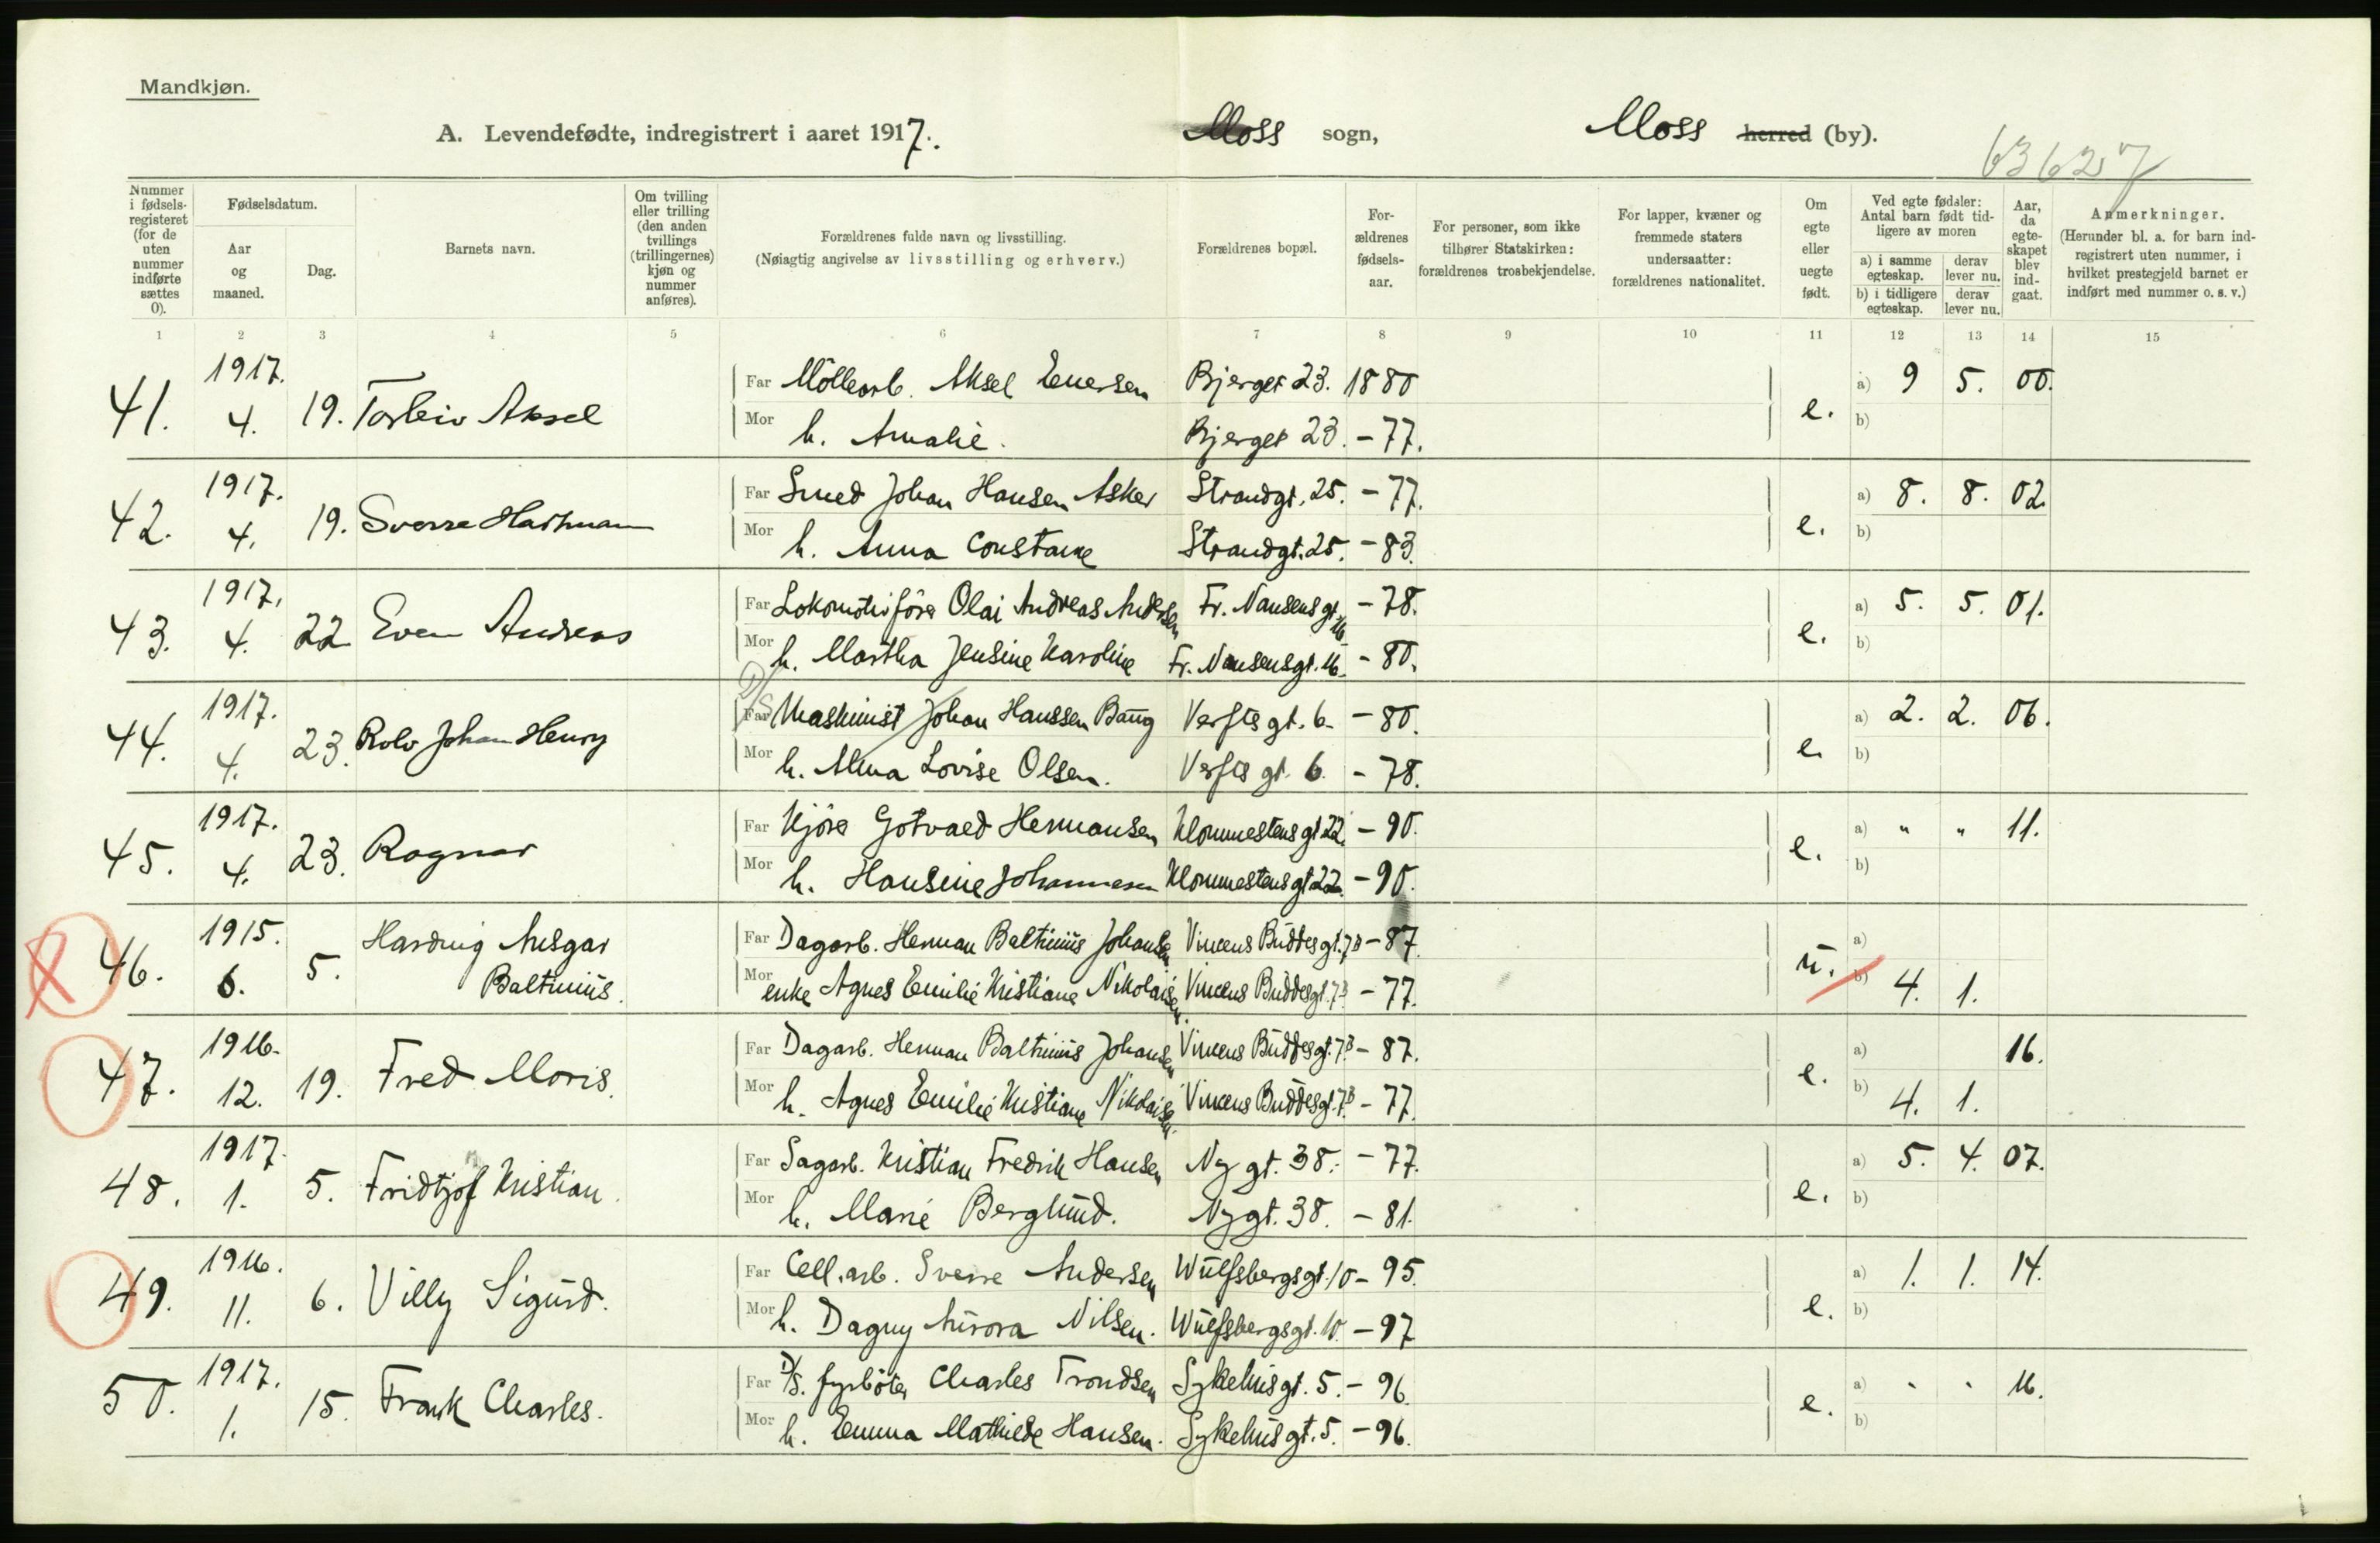 Mandkjøn.
A. Levendefødte, indregistrert i aaret 1917. Moss sogn, Moss herred (by).
63627
Nummer i fødselsregisteret (for de uten nummer indførte sættes 0).
Fødselsdatum.
Aar og maaned.
Dag.
Barnets navn.
Om tvilling eller trilling (den anden tvillings (trillingernes) kjøn og nummer anføres).
Forældrenes fulde navn og livsstilling.
(Nøiagtig angivelse av livsstilling og erhverv.)
Forældrenes bopæl.
Forældrenes fødselsaar.
For personer, som ikke tilhører Statskirken: forældrenes trosbekjendelse.
For lapper, kvæner og fremmede staters undersaatter: forældrenes nationalitet.
Om egte eller uegte født.
Ved egte fødsler: Antal barn født tidligere av moren
a) i samme egteskap. derav lever nu.
b) i tidligere egteskap. derav lever nu.
Aar, da egteskapet blev indgaat.
Anmerkninger.
(Herunder bl. a. for barn indregistrert uten nummer, i hvilket prestegjeld barnet er indført med nummer o. s. v.)
1 2 3 4 5 6 7 8 9 10 11 12 13 14 15
41. 1917. 4. 19. Torleiv Aksel
Far Möllearb. Aksel Eversen Bjerget 23. 1880 e. a) 9 5. 00.
Mor h. Amalie. Bjerget 23. - 77. b)
42. 1917. 4. 19. Sverre Hartman
Far Smed Johan Hansen Asker Strandgt. 25. - 77. e. a) 8. 8. 02.
Mor h. Anna Constance Strandgt. 25. - 83. b)
43. 1917. 4. 22 Even Andreas
Far Lokomotivförer Olai Andreas Andersen Fr. Nansensgt. 16 - 78. e. a) 5. 5. 01.
Mor h. Martha Jensine Karoline Fr. Nansensgt. 16. - 80. b)
44. 1917. 4. 23. Rolv Johan Henry
Far D/S Maskinist Johan Hanssen Baug Verfts gt. 6. - 80. e. a) 2. 2. 06.
Mor h. Alma Lovise Olsen. Verfts gt. 6. - 78. b)
45. 1917. 4. 23. Ragnar
Far Kjörer Gotvard Hermansen Klommestensgt 22. - 90. e. a) " " 11.
Mor h. Hansine Johannesen Klommestensgt 22. - 90. b)
46. 1915. 6. 5. Hardvig Ansgar Baltinius.
Far Dagarb. Herman Baltinius Johansen Vincens Buddesgt. 7B - 87. u. a)
Mor enke Agnes Emilie Kristiane Nikolaisen. Vincens Buddesgt. 7B - 77. b) 4. 1.
47. 1916. 12. 19. Fred Moris.
Far Dagarb. Herman Baltinius Johansen Vincens Buddesgt. 7B - 87. e. a) 16.
Mor h. Agnes Emilie Kristiane Nikolaisen. Vincens Buddesgt. 7B - 77. b) 4. 1.
48. 1917. 1. 5. Fridtjof Kristian.
Far Sagarb. Kristian Fredrik Hansen Ny gt. 38. - 77. e. a) 5. 4. 07.
Mor h. Marie Berglund. Ny gt. 38. - 81. b)
49. 1916. 11. 6. Villy Sigurd.
Far Cell. arb. Sverre Andersen Wulfsbergsgt. 10 - 95. e. a) 1. 1. 14.
Mor h. Dagny Aurora Nilsen. Wulfsbergsgt. 10. - 97 b)
50. 1917. 1. 15. Frank Charles.
Far D/S. fyrböter Charles Trondsen Sykehusgt. 5. - 96. e. a) . . 16.
Mor h. Emma Mathilde Hansen. Sykehusgt. 5. - 96. b)